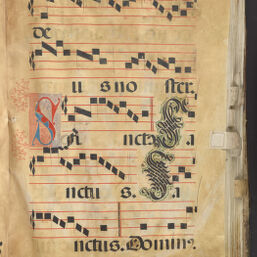 de
us no ster.
Sanctus. Sa
nctus. Sa
nctus. Domin9.